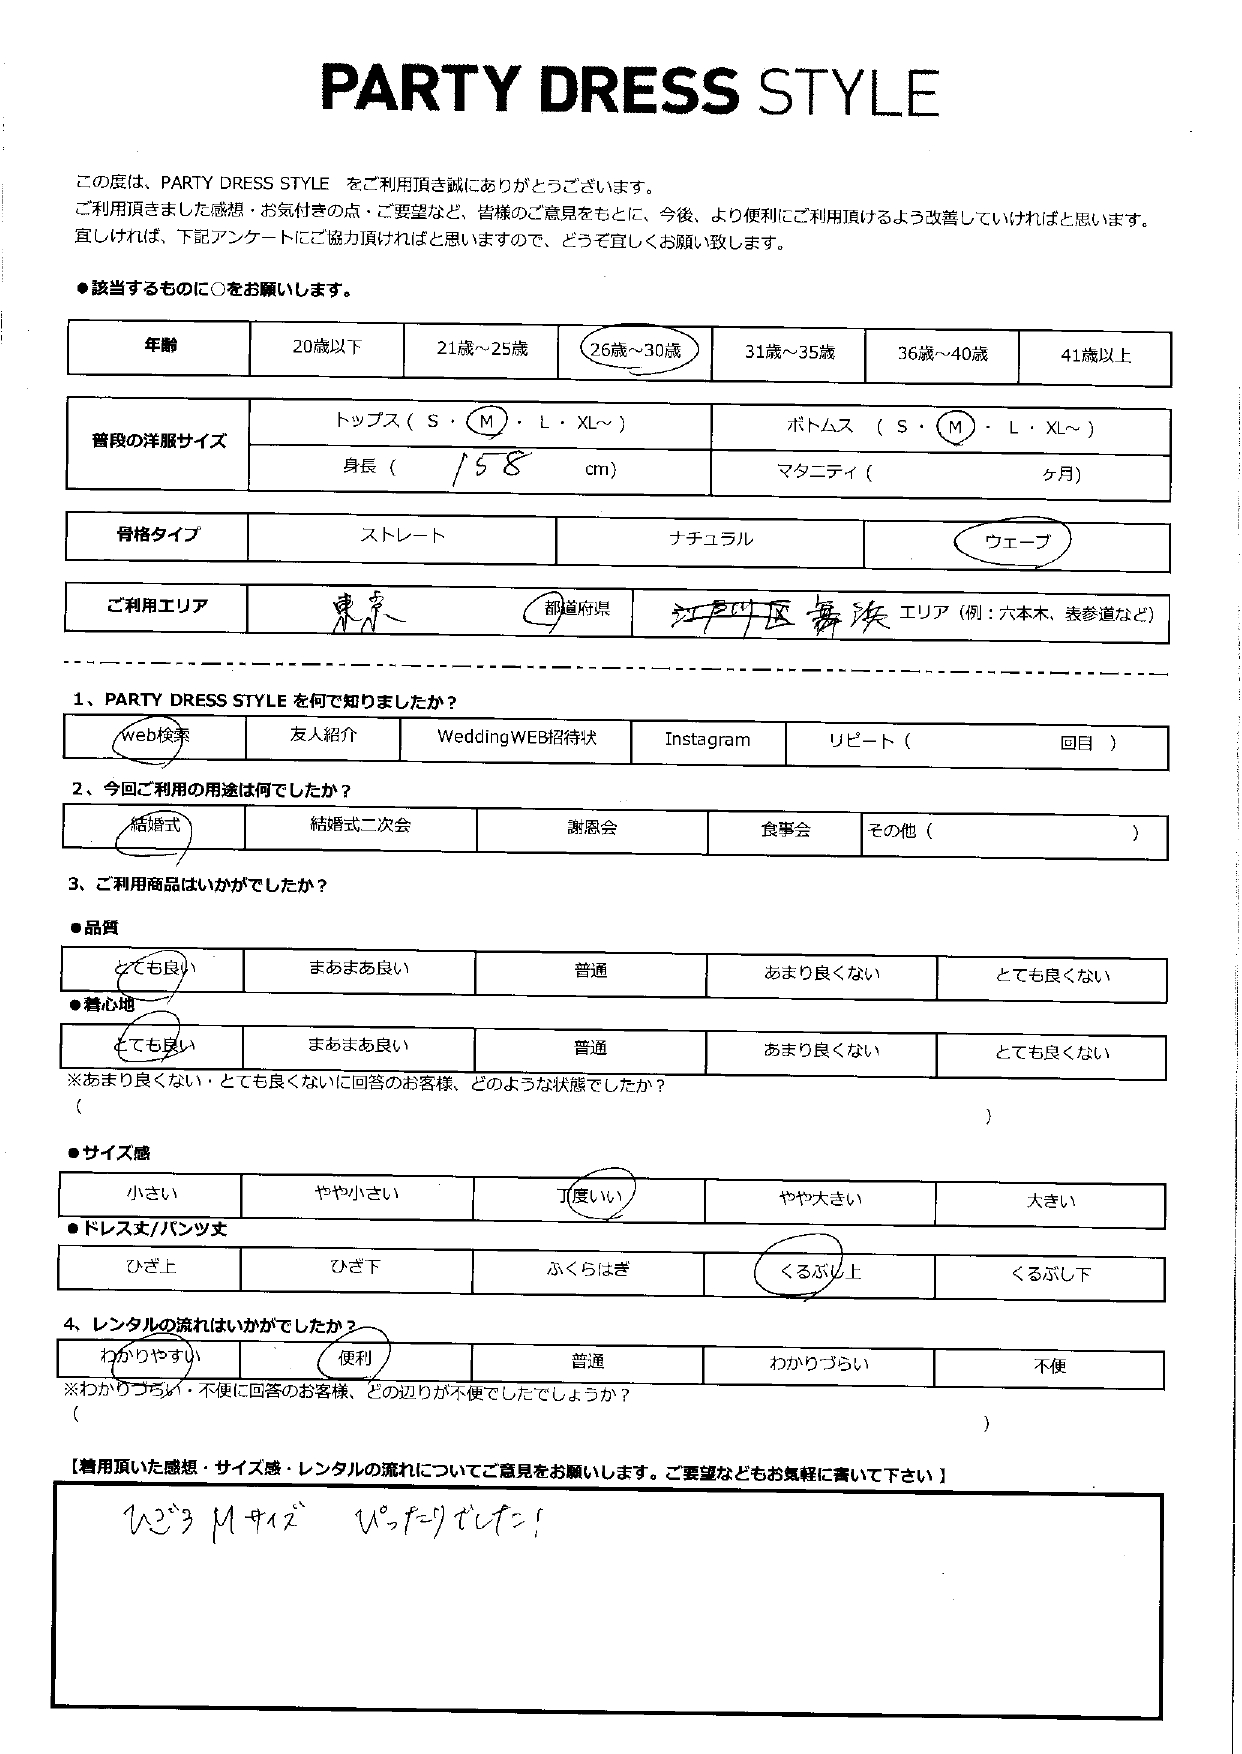 PARTY DRESS STYLE
この度は、PARTY DRESS STYLE をご利用頂き誠にありがとうございます。
ご利用頂きました感想・お気付きの点・ご要望など、皆様のご意見をもとに、今後、より便利にご利用頂けるよう改善していければと思います。
宜しければ、下記アンケートにご協力頂ければと思いますので、どうぞ宜しくお願い致します。
●該当するものに○をお願いします。
年齢 20歳以下 21歳～25歳 26歳～30歳 31歳～35歳 36歳～40歳 41歳以上
普段の洋服サイズ トップス ( S ・ M ・ L ・ XL～ ) ボトムス ( S ・ M ・ L ・ XL～ )
身長 ( 158 cm) マタニティ ( ヶ月)
骨格タイプ ストレート ナチュラル ウェーブ
ご利用エリア 東京 都道府県 江戸川区 舞浜 エリア（例：六本木、表参道など）
1、PARTY DRESS STYLE を何で知りましたか？
web検索 友人紹介 WeddingWEB招待状 Instagram リピート ( 回目 )
2、今回ご利用の用途は何でしたか？
結婚式 結婚式二次会 謝恩会 食事会 その他 ( )
3、ご利用商品はいかがでしたか？
●品質
とても良い まあまあ良い 普通 あまり良くない とても良くない
●着心地
とても良い まあまあ良い 普通 あまり良くない とても良くない
※あまり良くない・とても良くないに回答のお客様、どのような状態でしたか？
( )
●サイズ感
小さい やや小さい 丁度いい やや大きい 大きい
●ドレス丈/パンツ丈
ひざ上 ひざ下 ふくらはぎ くるぶし上 くるぶし下
4、レンタルの流れはいかがでしたか？
わかりやすい 便利 普通 わかりづらい 不便
※わかりづらい・不便に回答のお客様、どの辺りが不便でしたでしょうか？
( )
【着用頂いた感想・サイズ感・レンタルの流れについてご意見をお願いします。ご要望などもお気軽に書いて下さい】
ひごろ Mサイズ ぴったりでした！